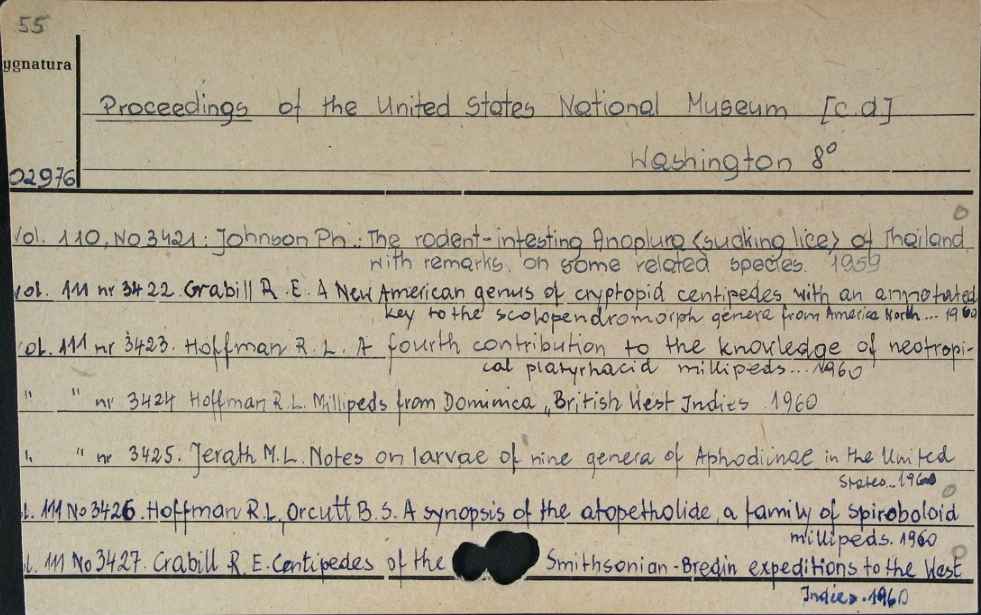 55
ygnatura
Proceedings of the United States National Museum [c.d]
Washington 8°
02976
Vol. 110, No 3421: Johnson Ph.: The rodent-infesting Anoplura <sucking lice> of Thailand
with remarks, on some related species. 1959
Vol. 111 nr 3422. Crabill R. E. A New American genus of cryptopid centipedes, with an annotated
key to the scolopendromorph genera from America North ... 1960
Vol. 111 nr 3423. Hoffman R. L. A fourth contribution to the knowledge of neotropi-
cal platyrhacid millipeds... 1960
" " nr 3424 Hoffman R.L. Millipeds from Dominica, British West Indies 1960
" " nr 3425. Jerath M.L. Notes on larvae of nine genera of Aphodiinae in the United
States.. 1960
l. 111 No 3426. Hoffman R.L, Orcutt B.S. A synopsis of the atopetholide, a family of spiroboloid
millipeds. 1960
l. 111 No 3427. Crabill R. E. Centipedes of the Smithsonian-Bredin expeditions to the West
Indies. 1960